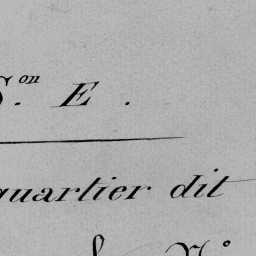 S.on E.
quartier dit
N°